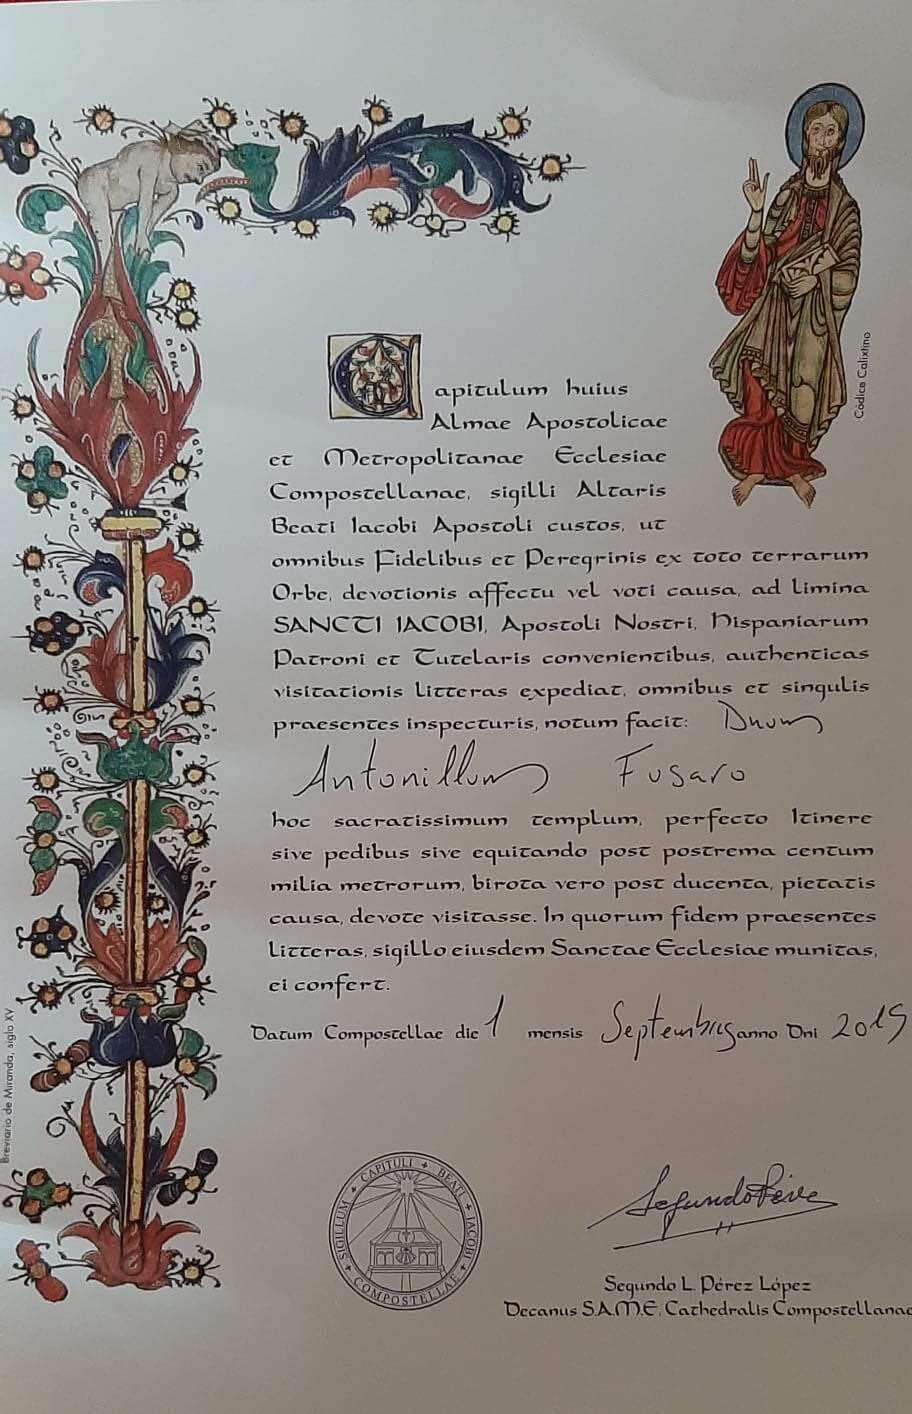 Capitulum huius
Almae Apostolicae
et Metropolitanae Ecclesiae
Compostellanae, sigilli Altaris
Beati Iacobi Apostoli custos, ut
omnibus Fidelibus et Peregrinis ex toto terrarum
Orbe, devotionis affectu vel voti causa, ad limina
SANCTI IACOBI, Apostoli Nostri, Hispaniarum
Patroni et Tutelaris convenientibus, authenticas
visitationis litteras expediat, omnibus et singulis
praesentes inspecturis, notum facit: Dnum
Antonillum Fusaro
hoc sacratissimum templum, perfecto Itinere
sive pedibus sive equitando post postrema centum
milia metrorum, birota vero post ducenta, pietatis
causa, devote visitasse. In quorum fidem praesentes
litteras, sigillo eiusdem Sanctae Ecclesiae munitas,
ei confert.
Datum Compostellae die 1 mensis Septembris anno Dni 2019
SIGILLUM CAPITULI BEATI IACOBI COMPOSTELLAE
Segundo Pérez
Segundo L. Pérez López
Decanus S.A.M.E. Cathedralis Compostellanae
Códice Calixtino
Breviario de Miranda, siglo XV